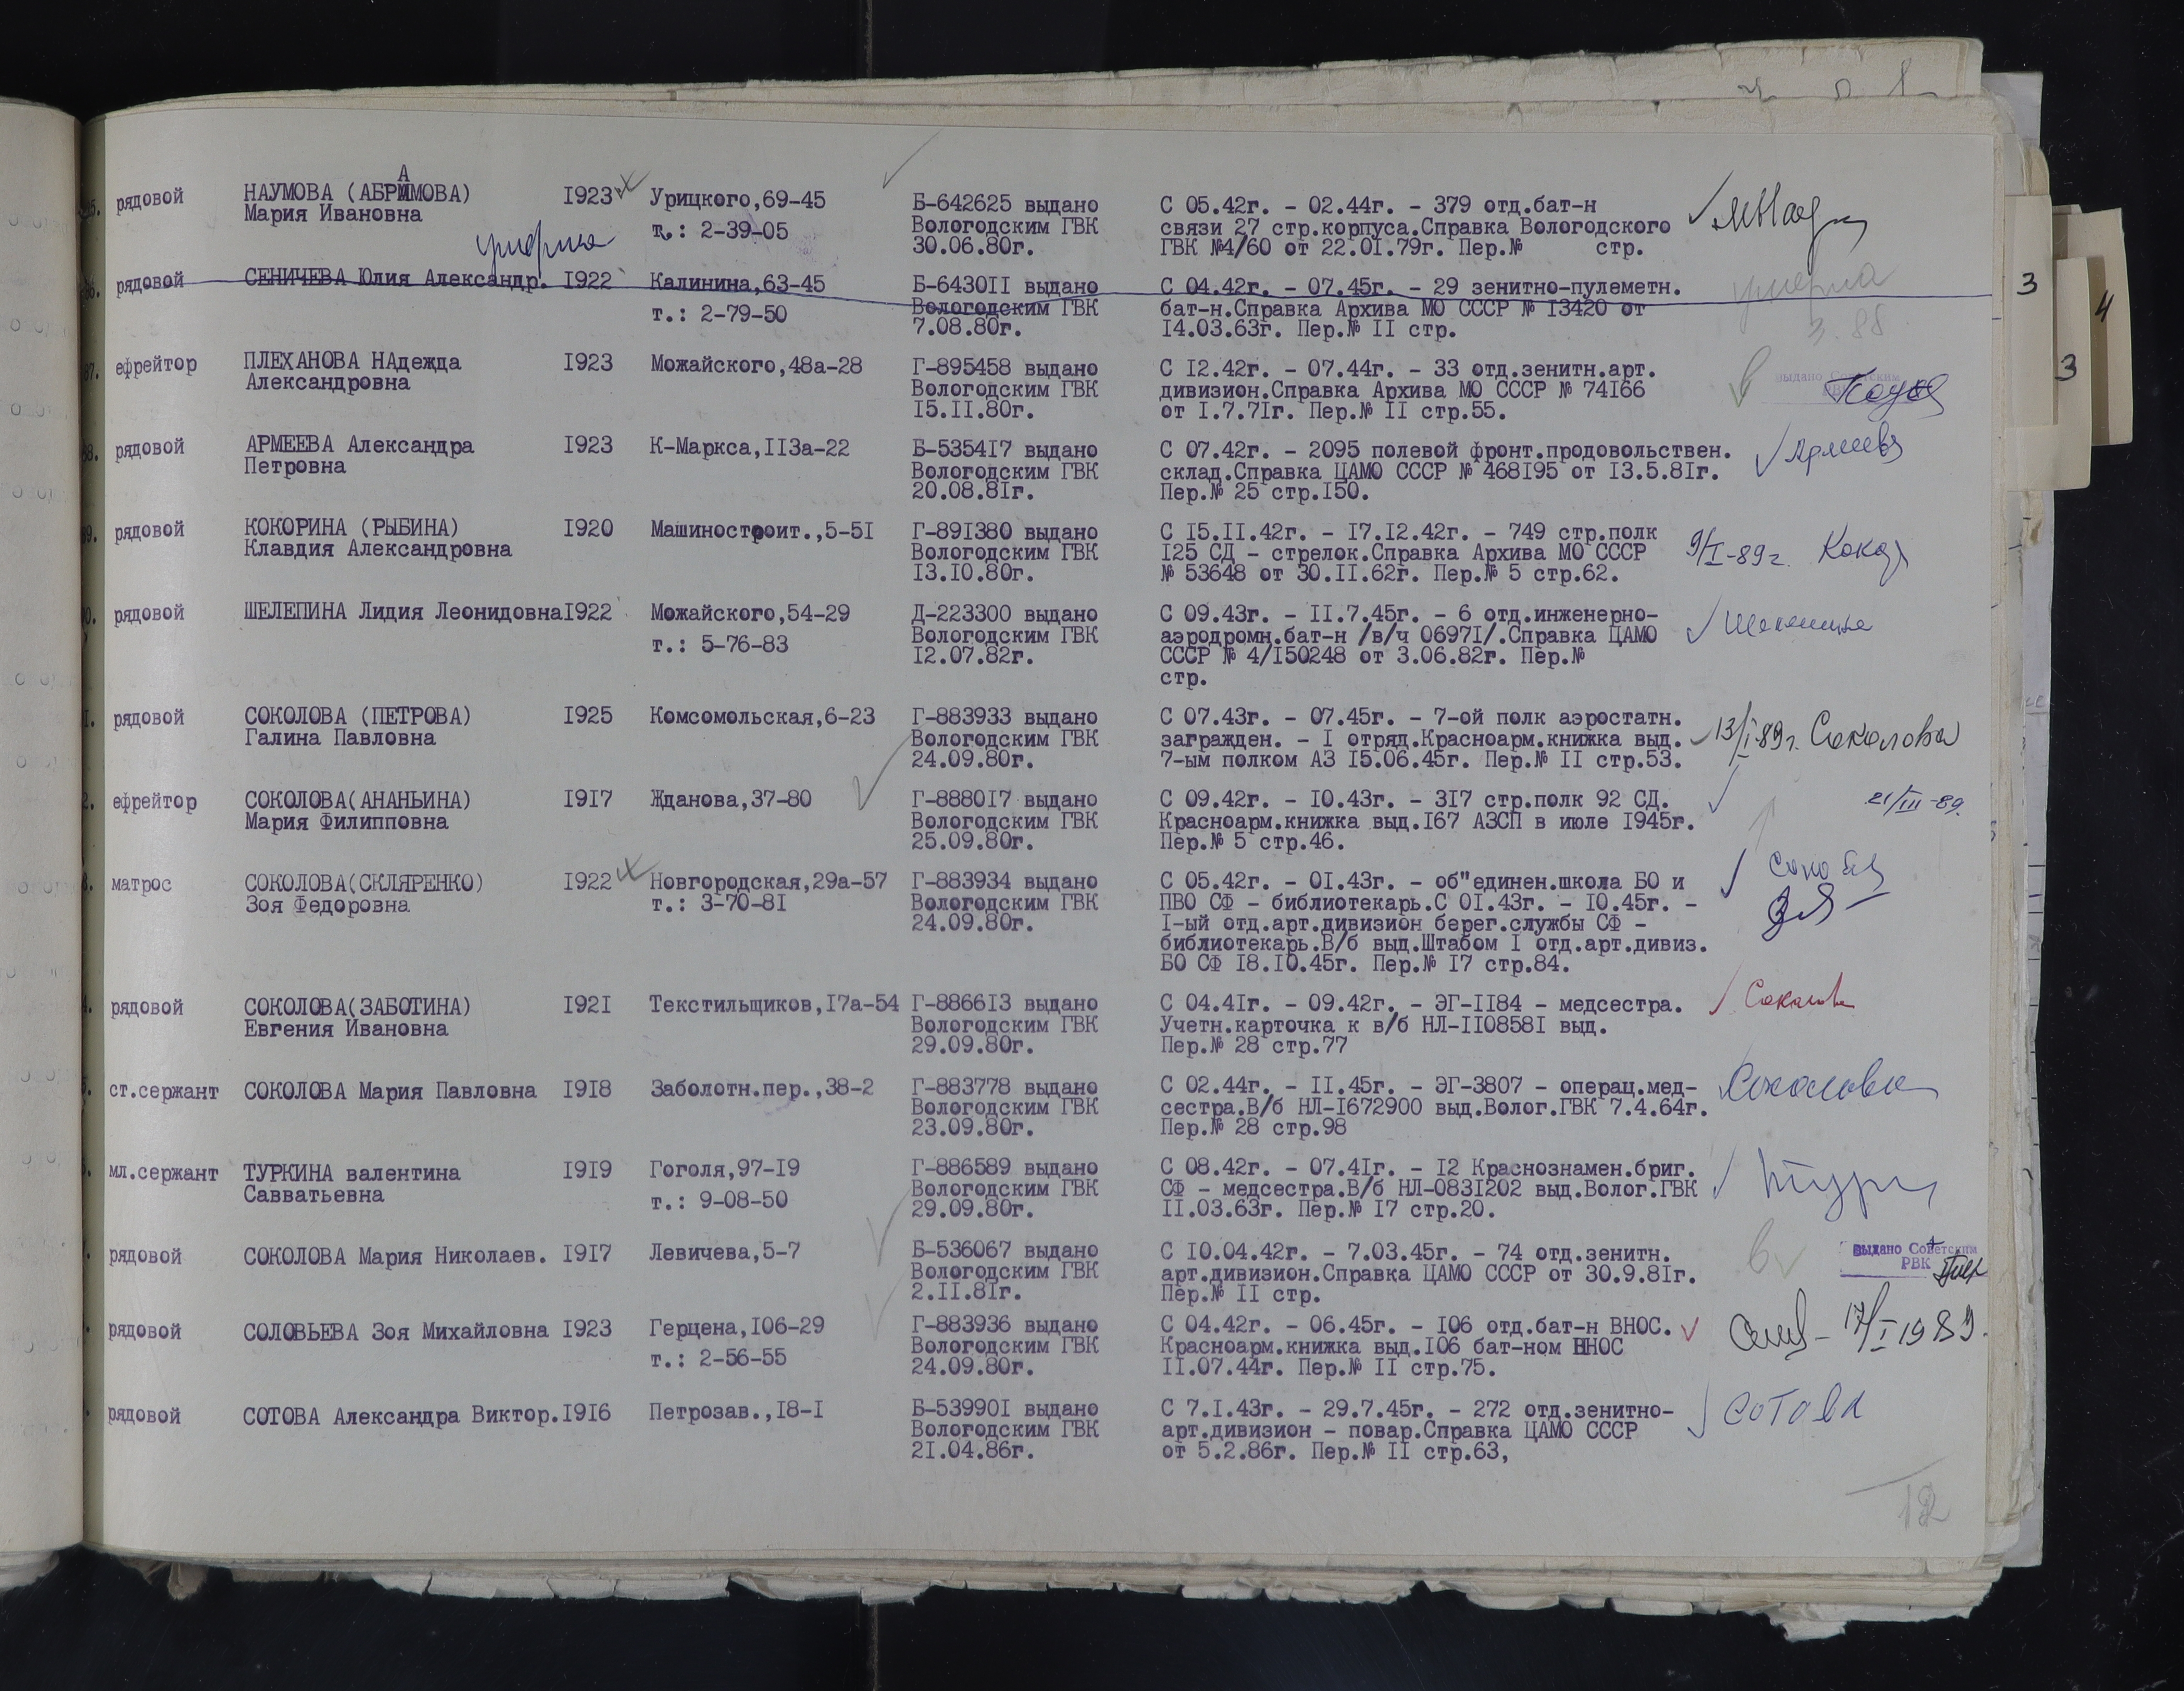 А
рядовой НАУМОВА (АБРАМОВА) 1923 Урицкого,69-45 Б-642625 выдано С 05.42г. - 02.44г. - 379 отд.бат-н
Мария Ивановна т.: 2-39-05 Вологодским ГВК связи 27 стр.корпуса.Справка Вологодского
30.06.80г. ГВК №4/60 от 22.01.79г. Пер.№ стр.
умерла
рядовой СЕНИЧЕВА Юлия Александр. 1922 Калинина,63-45 Б-643011 выдано С 04.42г. - 07.45г. - 29 зенитно-пулеметн. умерла
т.: 2-79-50 Вологодским ГВК бат-н.Справка Архива МО СССР № 13420 от
7.08.80г. 14.03.63г. Пер.№ 11 стр. 3.88
ефрейтор ПЛЕХАНОВА НАдежда 1923 Можайского,48а-28 Г-895458 выдано С 12.42г. - 07.44г. - 33 отд.зенитн.арт. выдано Советским
Александровна Вологодским ГВК дивизион.Справка Архива МО СССР № 74166 РВК
15.11.80г. от 1.7.71г. Пер.№ 11 стр.55.
рядовой АРМЕЕВА Александра 1923 К-Маркса,113а-22 Б-535417 выдано С 07.42г. - 2095 полевой фронт.продовольствен. Армеева
Петровна Вологодским ГВК склад.Справка ЦАМО СССР № 468195 от 13.5.81г.
20.08.81г. Пер.№ 25 стр.150.
рядовой КОКОРИНА (РЫБИНА) 1920 Машиностроит.,5-51 Г-891380 выдано С 15.11.42г. - 17.12.42г. - 749 стр.полк
Клавдия Александровна Вологодским ГВК 125 СД - стрелок.Справка Архива МО СССР 9/I-89г. Кокор
13.10.80г. № 53648 от 30.11.62г. Пер.№ 5 стр.62.
рядовой ШЕЛЕПИНА Лидия Леонидовна 1922 Можайского,54-29 Д-223300 выдано С 09.43г. - 11.7.45г. - 6 отд.инженерно-
т.: 5-76-83 Вологодским ГВК аэродромн.бат-н /в/ч 06971/.Справка ЦАМО Шелепина
12.07.82г. СССР № 4/150248 от 3.06.82г. Пер.№
стр.
рядовой СОКОЛОВА (ПЕТРОВА) 1925 Комсомольская,6-23 Г-883933 выдано С 07.43г. - 07.45г. - 7-ой полк аэростатн.
Галина Павловна Вологодским ГВК загражден. - 1 отряд.Красноарм.книжка выд. 13/I-89г. Соколова
24.09.80г. 7-ым полком АЗ 15.06.45г. Пер.№ 11 стр.53.
ефрейтор СОКОЛОВА(АНАНЬИНА) 1917 Жданова,37-80 Г-888017 выдано С 09.42г. - 10.43г. - 317 стр.полк 92 СД. 21/III-89.
Мария Филипповна Вологодским ГВК Красноарм.книжка выд.167 АЗСП в июле 1945г.
25.09.80г. Пер.№ 5 стр.46.
матрос СОКОЛОВА(СКЛЯРЕНКО) 1922 Новгородская,29а-57 Г-883934 выдано С 05.42г. - 01.43г. - об"единен.школа БО и
Зоя Федоровна т.: 3-70-81 Вологодским ГВК ПВО СФ - библиотекарь.С 01.43г. - 10.45г. -
24.09.80г. 1-ый отд.арт.дивизион берег.службы СФ -
библиотекарь.В/б выд.Штабом 1 отд.арт.дивиз.
БО СФ 18.10.45г. Пер.№ 17 стр.84.
рядовой СОКОЛОВА(ЗАБОТИНА) 1921 Текстильщиков,17а-54 Г-886613 выдано С 04.41г. - 09.42г. - ЭГ-1184 - медсестра. Соколова
Евгения Ивановна Вологодским ГВК Учетн.карточка к в/б НЛ-1108581 выд.
29.09.80г. Пер.№ 28 стр.77
ст.сержант СОКОЛОВА Мария Павловна 1918 Заболотн.пер.,38-2 Г-883778 выдано С 02.44г. - 11.45г. - ЭГ-3807 - операц.мед- Соколова
Вологодским ГВК сестра.В/б НЛ-1672900 выд.Волог.ГВК 7.4.64г.
23.09.80г. Пер.№ 28 стр.98
мл.сержант ТУРКИНА валентина 1919 Гоголя,97-19 Г-886589 выдано С 08.42г. - 07.41г. - 12 Краснознамен.бриг.
Савватьевна т.: 9-08-50 Вологодским ГВК СФ - медсестра.В/б НЛ-0831202 выд.Волог.ГВК
29.09.80г. 11.03.63г. Пер.№ 17 стр.20.
рядовой СОКОЛОВА Мария Николаев. 1917 Левичева,5-7 Б-536067 выдано С 10.04.42г. - 7.03.45г. - 74 отд.зенитн. выдано Советским
Вологодским ГВК арт.дивизион.Справка ЦАМО СССР от 30.9.81г. РВК
2.11.81г. Пер.№ 11 стр.
рядовой СОЛОВЬЕВА Зоя Михайловна 1923 Герцена,106-29 Г-883936 выдано С 04.42г. - 06.45г. - 106 отд.бат-н ВНОС. 17/I 1989.
т.: 2-56-55 Вологодским ГВК Красноарм.книжка выд.106 бат-ном ВНОС
24.09.80г. 11.07.44г. Пер.№ 11 стр.75.
рядовой СОТОВА Александра Виктор. 1916 Петрозав.,18-1 Б-539901 выдано С 7.1.43г. - 29.7.45г. - 272 отд.зенитно- Сотова
Вологодским ГВК арт.дивизион - повар.Справка ЦАМО СССР
21.04.86г. от 5.2.86г. Пер.№ 11 стр.63,
12
3
4
3